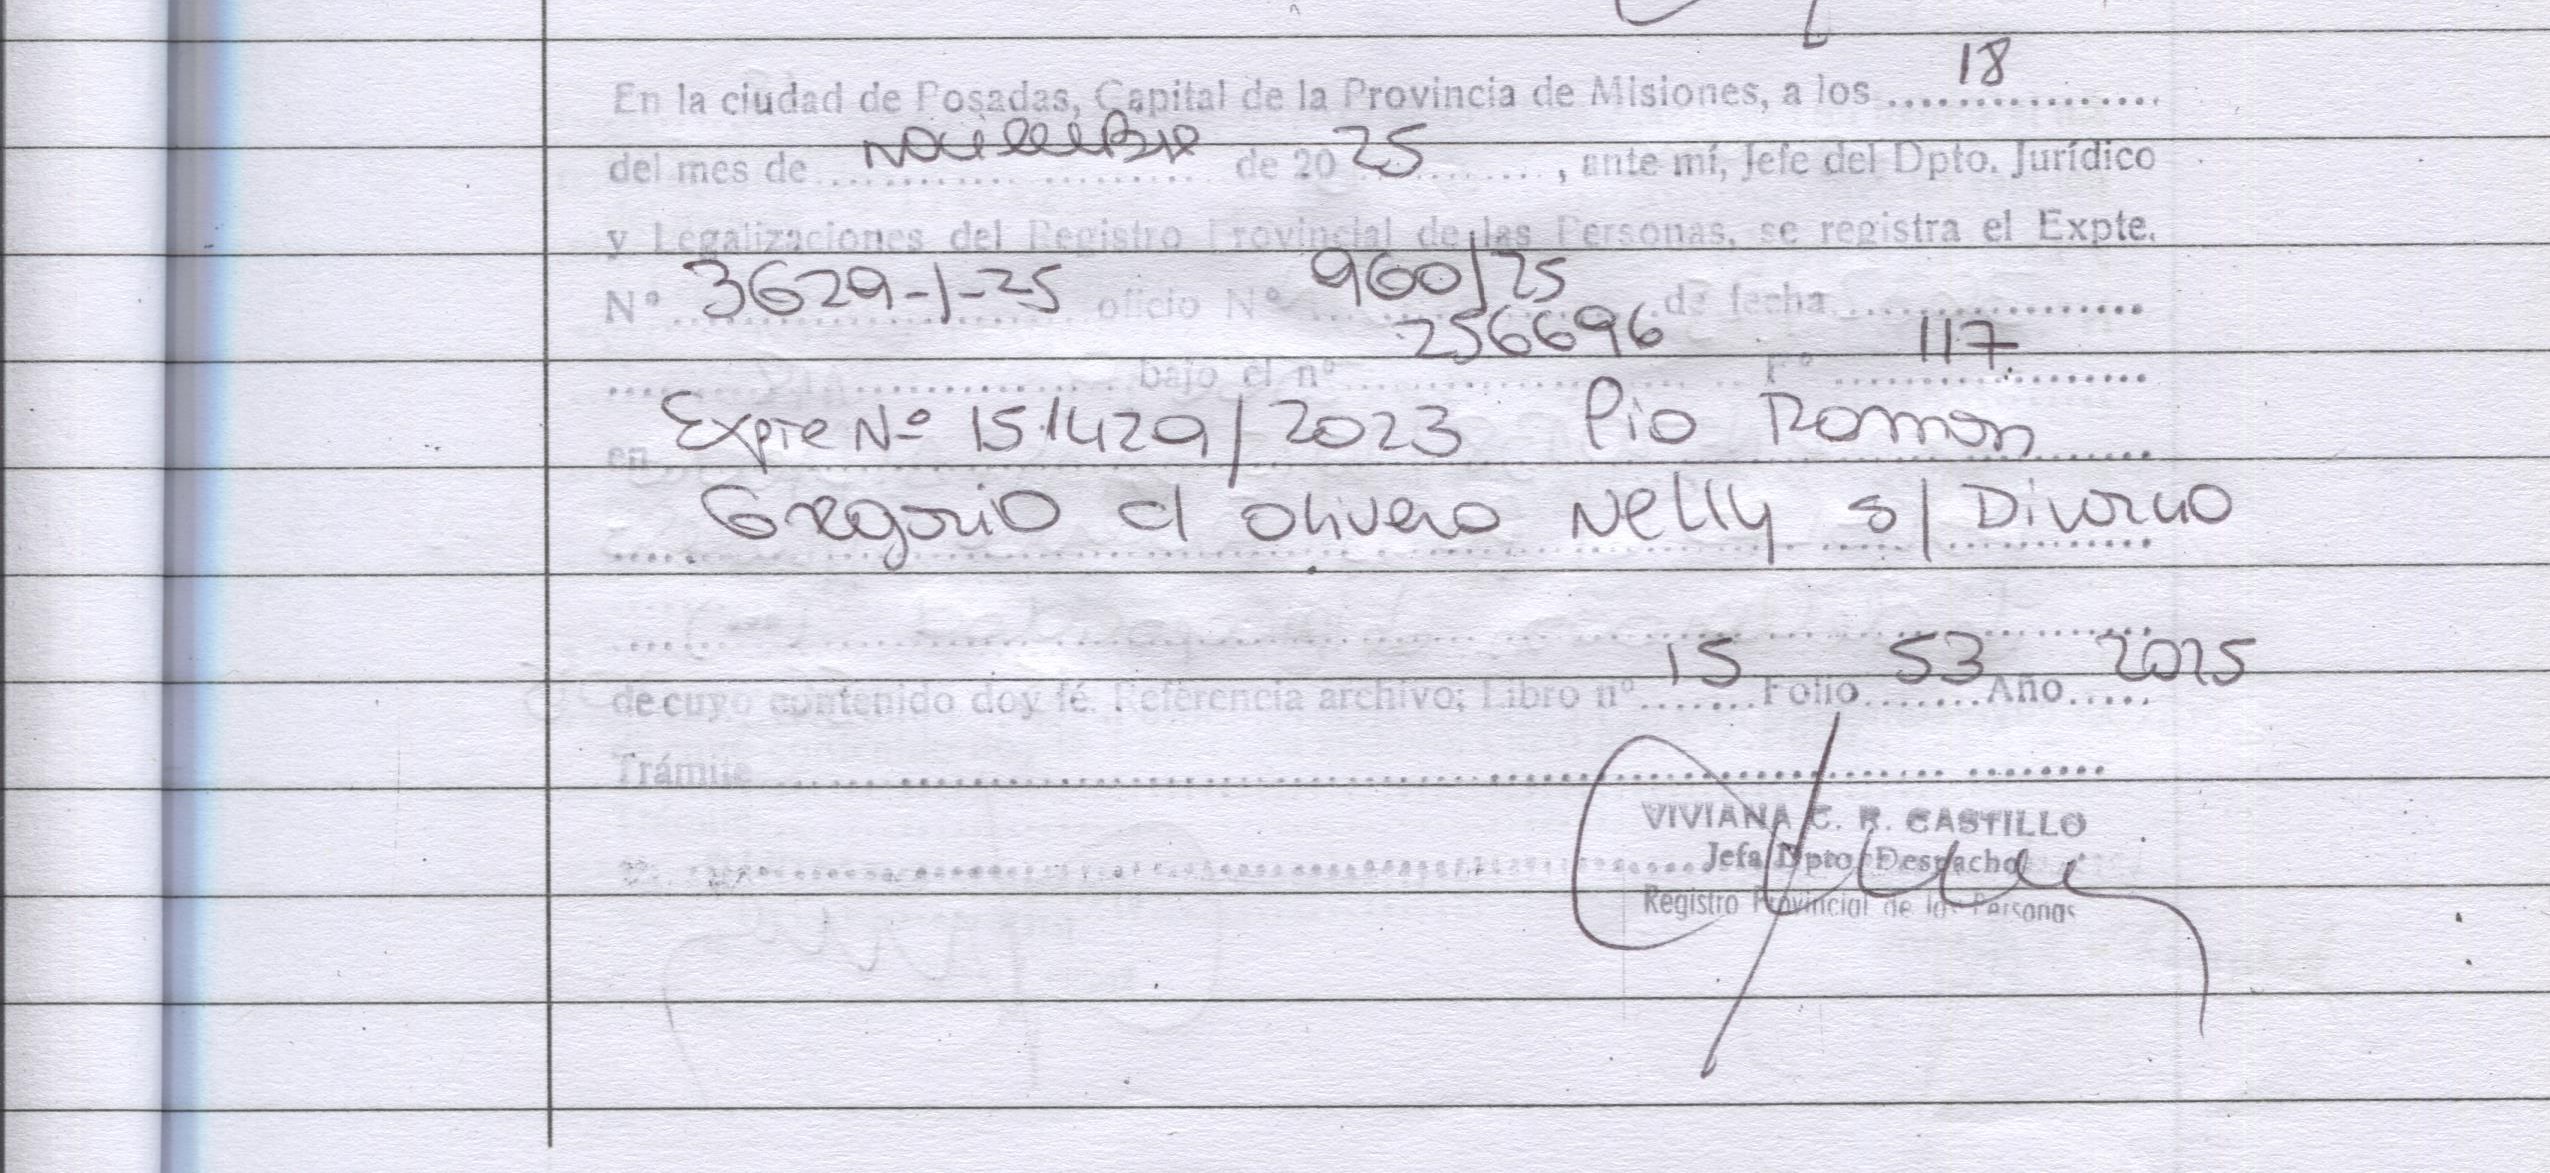 18
En la ciudad de Posadas, Capital de la Provincia de Misiones, a los ................
del mes de noviembre de 20 25 , ante mí, Jefe del Dpto. Jurídico
y Legalizaciones del Registro Provincial de las Personas, se registra el Expte.
Nº 3629-1-25 oficio Nº 960/25 de fecha ................
bajo el nº 256696 Fº 117
en Expte Nº 151429/2023 Pio Roman
Gregorio c/ Olivero Nelly s/ Divorcio
de cuyo contenido doy fé. Referencia archivo; Libro nº 15 Folio 53 Año 2025
Trámite ................
VIVIANA C. R. CASTILLO
Jefa Dpto Despacho
Registro Provincial de las Personas